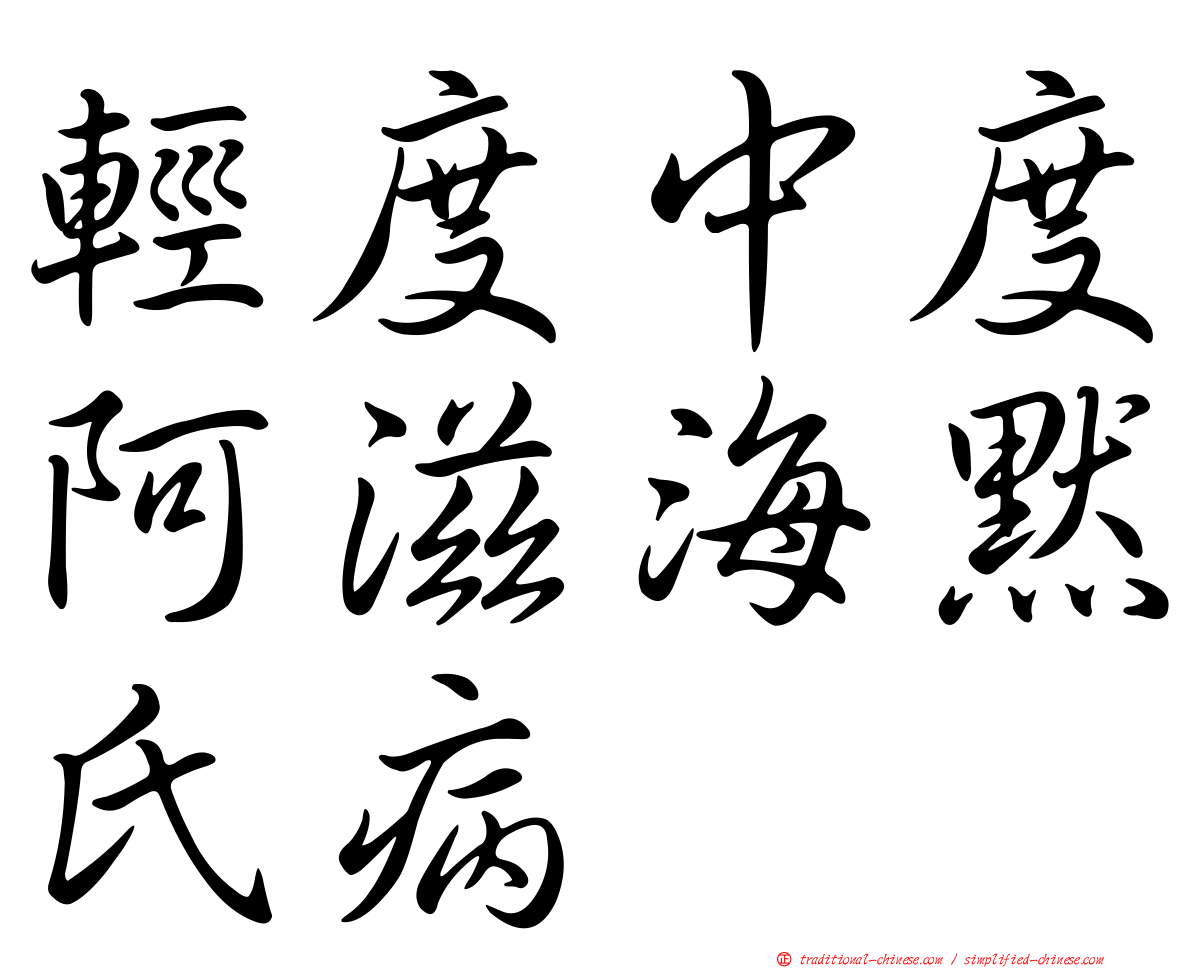 輕度中度
阿滋海默
氏病
正 traditional-chinese.com / simplified-chinese.com